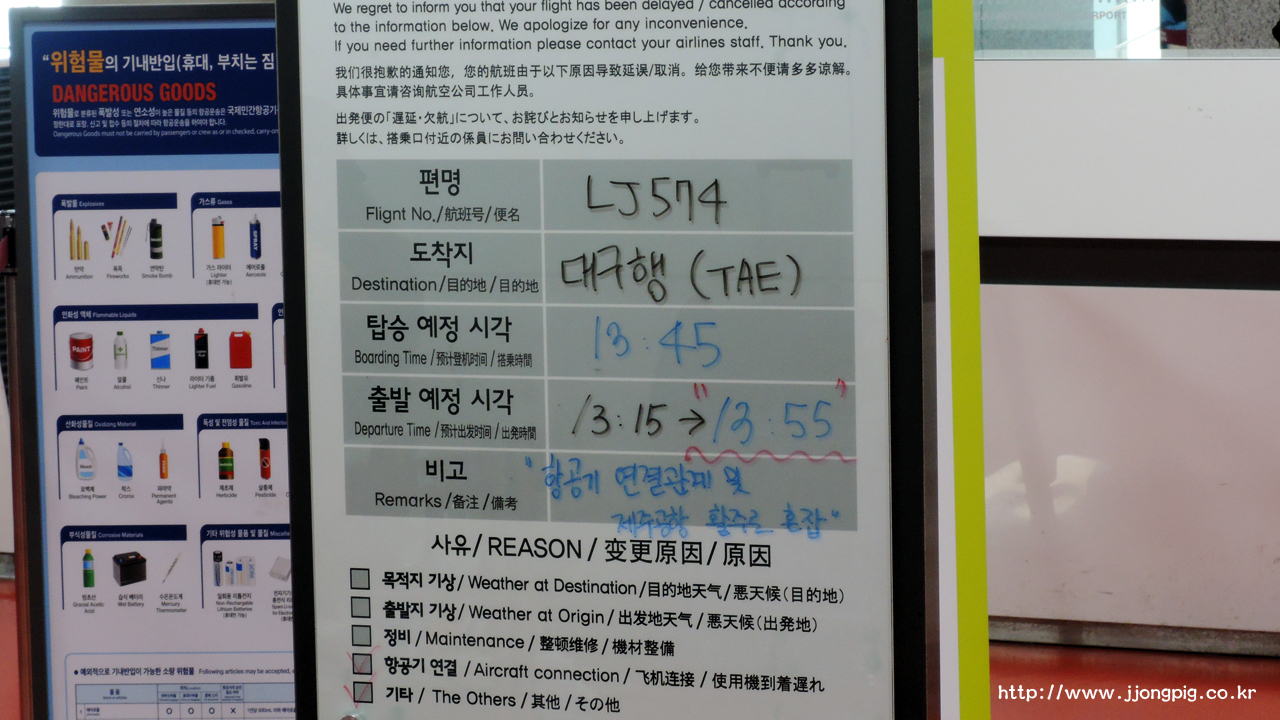 We regret to inform you that your flight has been delayed / cancelled according
to the information below. We apologize for any inconvenience.
If you need further information please contact your airlines staff. Thank you.
我们很抱歉的通知您，您的航班由于以下原因导致延误/取消。给您带来不便请多多谅解。
具体事宜请咨询航空公司工作人员。
出発便の「遅延・欠航」について、お詫びとお知らせを申し上げます。
詳しくは、搭乗口付近の係員にお問い合わせください。
편명
Flignt No./航班号/便名
LJ574
도착지
Destination/目的地/目的地
대구행 (TAE)
탑승 예정 시각
Boarding Time/预计登机时间/搭乗時間
13:45
출발 예정 시각
Departure Time/预计出发时间/出発時間
13:15→"13:55"
비고
Remarks/备注/備考
"항공기 연결관계 및
제주공항 활주로 혼잡"
사유/REASON/变更原因/原因
목적지 기상/Weather at Destination/目的地天气/悪天候(目的地)
출발지 기상/Weather at Origin/出发地天气/悪天候(出発地)
정비/Maintenance/整顿维修/機材整備
항공기 연결/Aircraft connection/飞机连接/使用機到着遅れ
기타/The Others/其他/その他
"위험물의 기내반입(휴대, 부치는 짐
DANGEROUS GOODS
위험물로 분류된 폭발성 또는 연소성이 높은 물질 등의 항공운송은 국제민간항공기
Dangerous Goods must not be carried by passengers or crew as or in checked, carry-on
폭발물 Explosives
가스류 Gases
탄약
Ammunition
폭죽
Fireworks
연막탄
Smoke Bomb
가스 라이터
Lighter
(휴대만 가능)
에어로졸
Aerosols
인화성 액체 Flammable Liquids
PAINT
페인트
Paint
알콜
Alcohol
신나
Thinner
라이터 기름
Lighter Fuel
휘발유
Gasoline
산화성물질 Oxidizing Material
독성 및 전염성 물질
표백제
Bleaching Power
락스
Clorox
파마약
Permanent
Agents
제초제
Herbicide
살충제
Pesticide
부식성물질 Corrosive Materials
기타 위험성 물품 및 물질
빙초산
Glacial Acetic
Acid
습식 배터리
Wet Battery
수은온도계
Mercury
Thermometer
일회용 리튬전지
Non-Rechargable
Lithium Batteries
(휴대만 가능)
예외적으로 기내반입이 가능한 소량 위험물 Following articles may be accepted,
http://www.jjongpig.co.kr